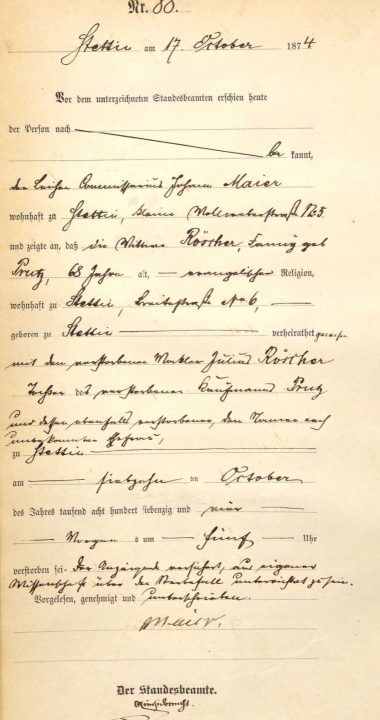 Nr. 80.
Stettin am 17 October 1874
Vor dem unterzeichneten Standesbeamten erschien heute
der Person nach
be kannt,
der Leichen Commissarius Johann Maier
wohnhaft zu Stettin, kleine Wollweberstraße No 5
und zeigte an, daß die Wittwe Röscher, Fanny geb
Prutz, 68 Jahre alt, evangelischer Religion,
wohnhaft zu Stettin, Breitestraße No 6,
geboren zu Stettin verheirathet gewesen
mit dem verstorbenen Makler Julius Röscher
Tochter des verstorbenen Kaufmanns Prutz
und dessen ebenfalls verstorbenen, dem Namen nach
unbekannten Ehefrau,
zu Stettin
am siebzehn ten October
des Jahres tausend acht hundert siebenzig und vier
Morgen s um fünf Uhr
verstorben sei. Der Anzeigende versichert, aus eigener
Wissenschaft über den Sterbefall unterrichtet zu sein.
Vorgelesen, genehmigt und unterschrieben.
Maier.
Der Standesbeamte.